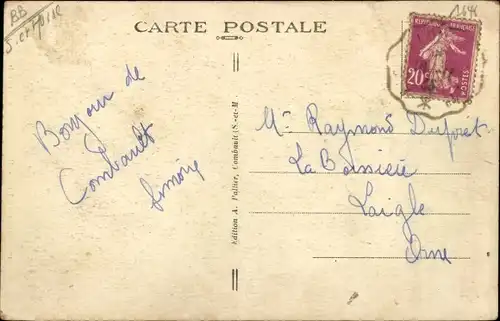 BB
S. et Oise
CARTE POSTALE
1645
REPUBLIQUE FRANÇAISE
20c
POSTES
Bonjour de
Combault
Simone
Edition A. Pallier, Combault (S.-et-M.
Mr Raymond Duforet
La
Laigle
Orne